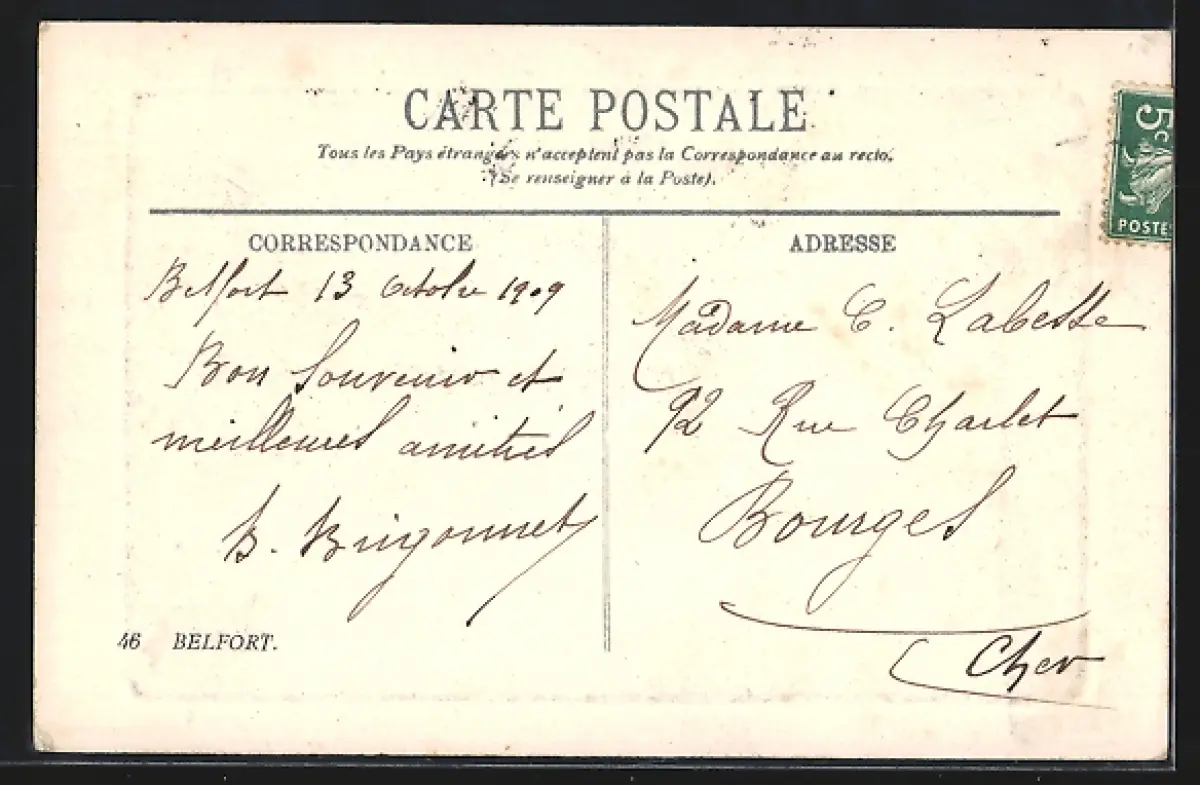 CARTE POSTALE
Tous les Pays étrangers n'acceptent pas la Correspondance au recto.
(Se renseigner à la Poste).
5c
POSTE
CORRESPONDANCE
ADRESSE
Belfort 13 Octobre 1909
Bon Souvenir et
meilleures amitiés
B. Brigonnet
Madame C. Labesse
92 Rue Charlet
Bourges
Cher
46 BELFORT.